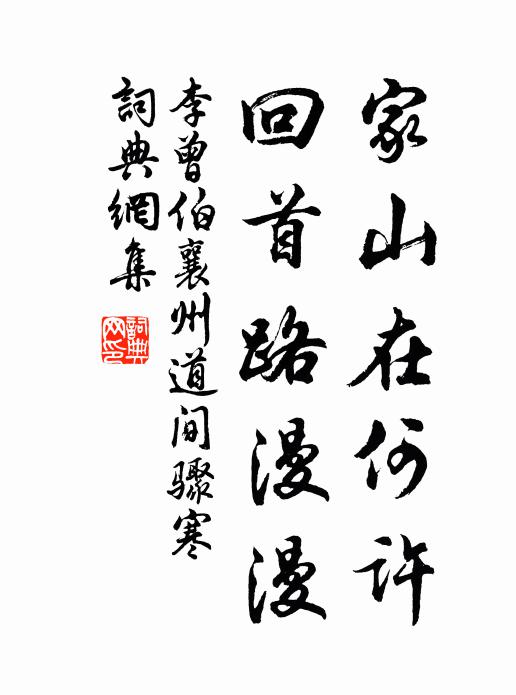 家山在何许
回首路漫漫
李曾伯襄州道间骤寒
詞典網集
詞典网印